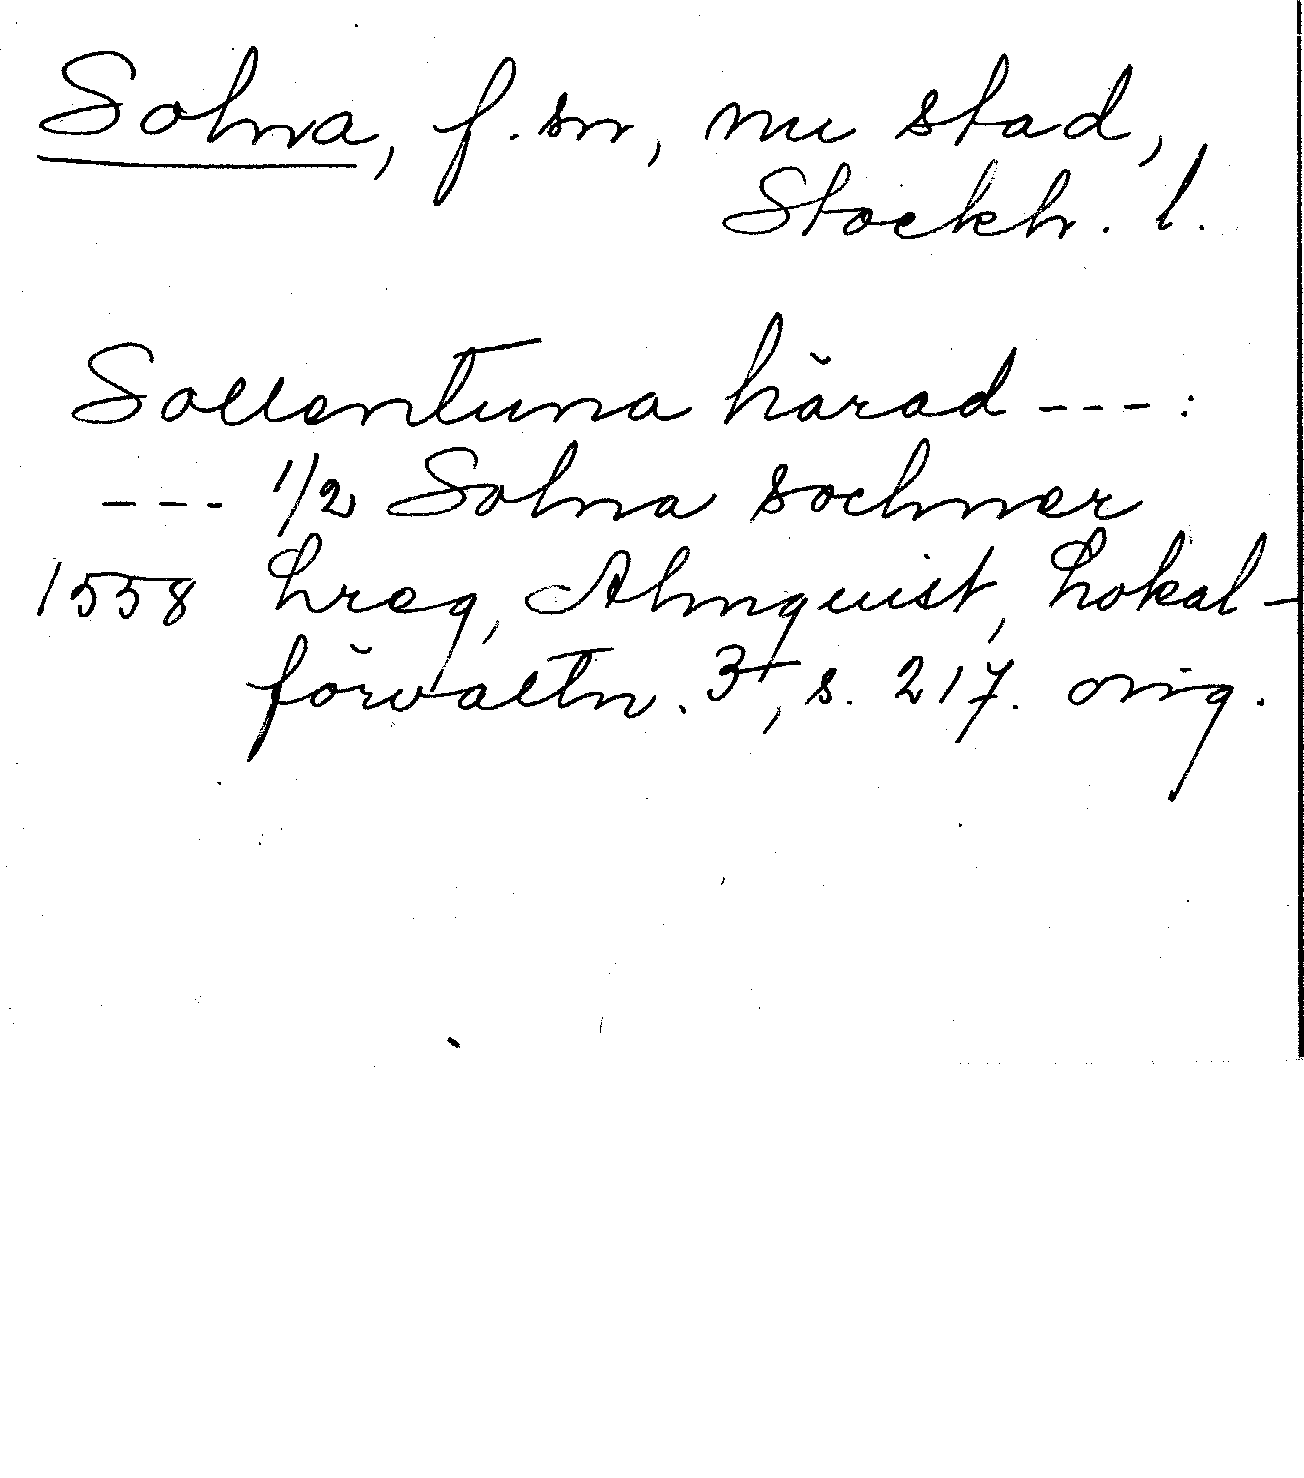 Solna, f. sn, nu stad,
Stockh. l.
Sollentuna härad ---:
--- 1/2 Solna sochner
1558 Lreg, Almquist, Lokal-
förvaltn. 3, s. 217. orig.